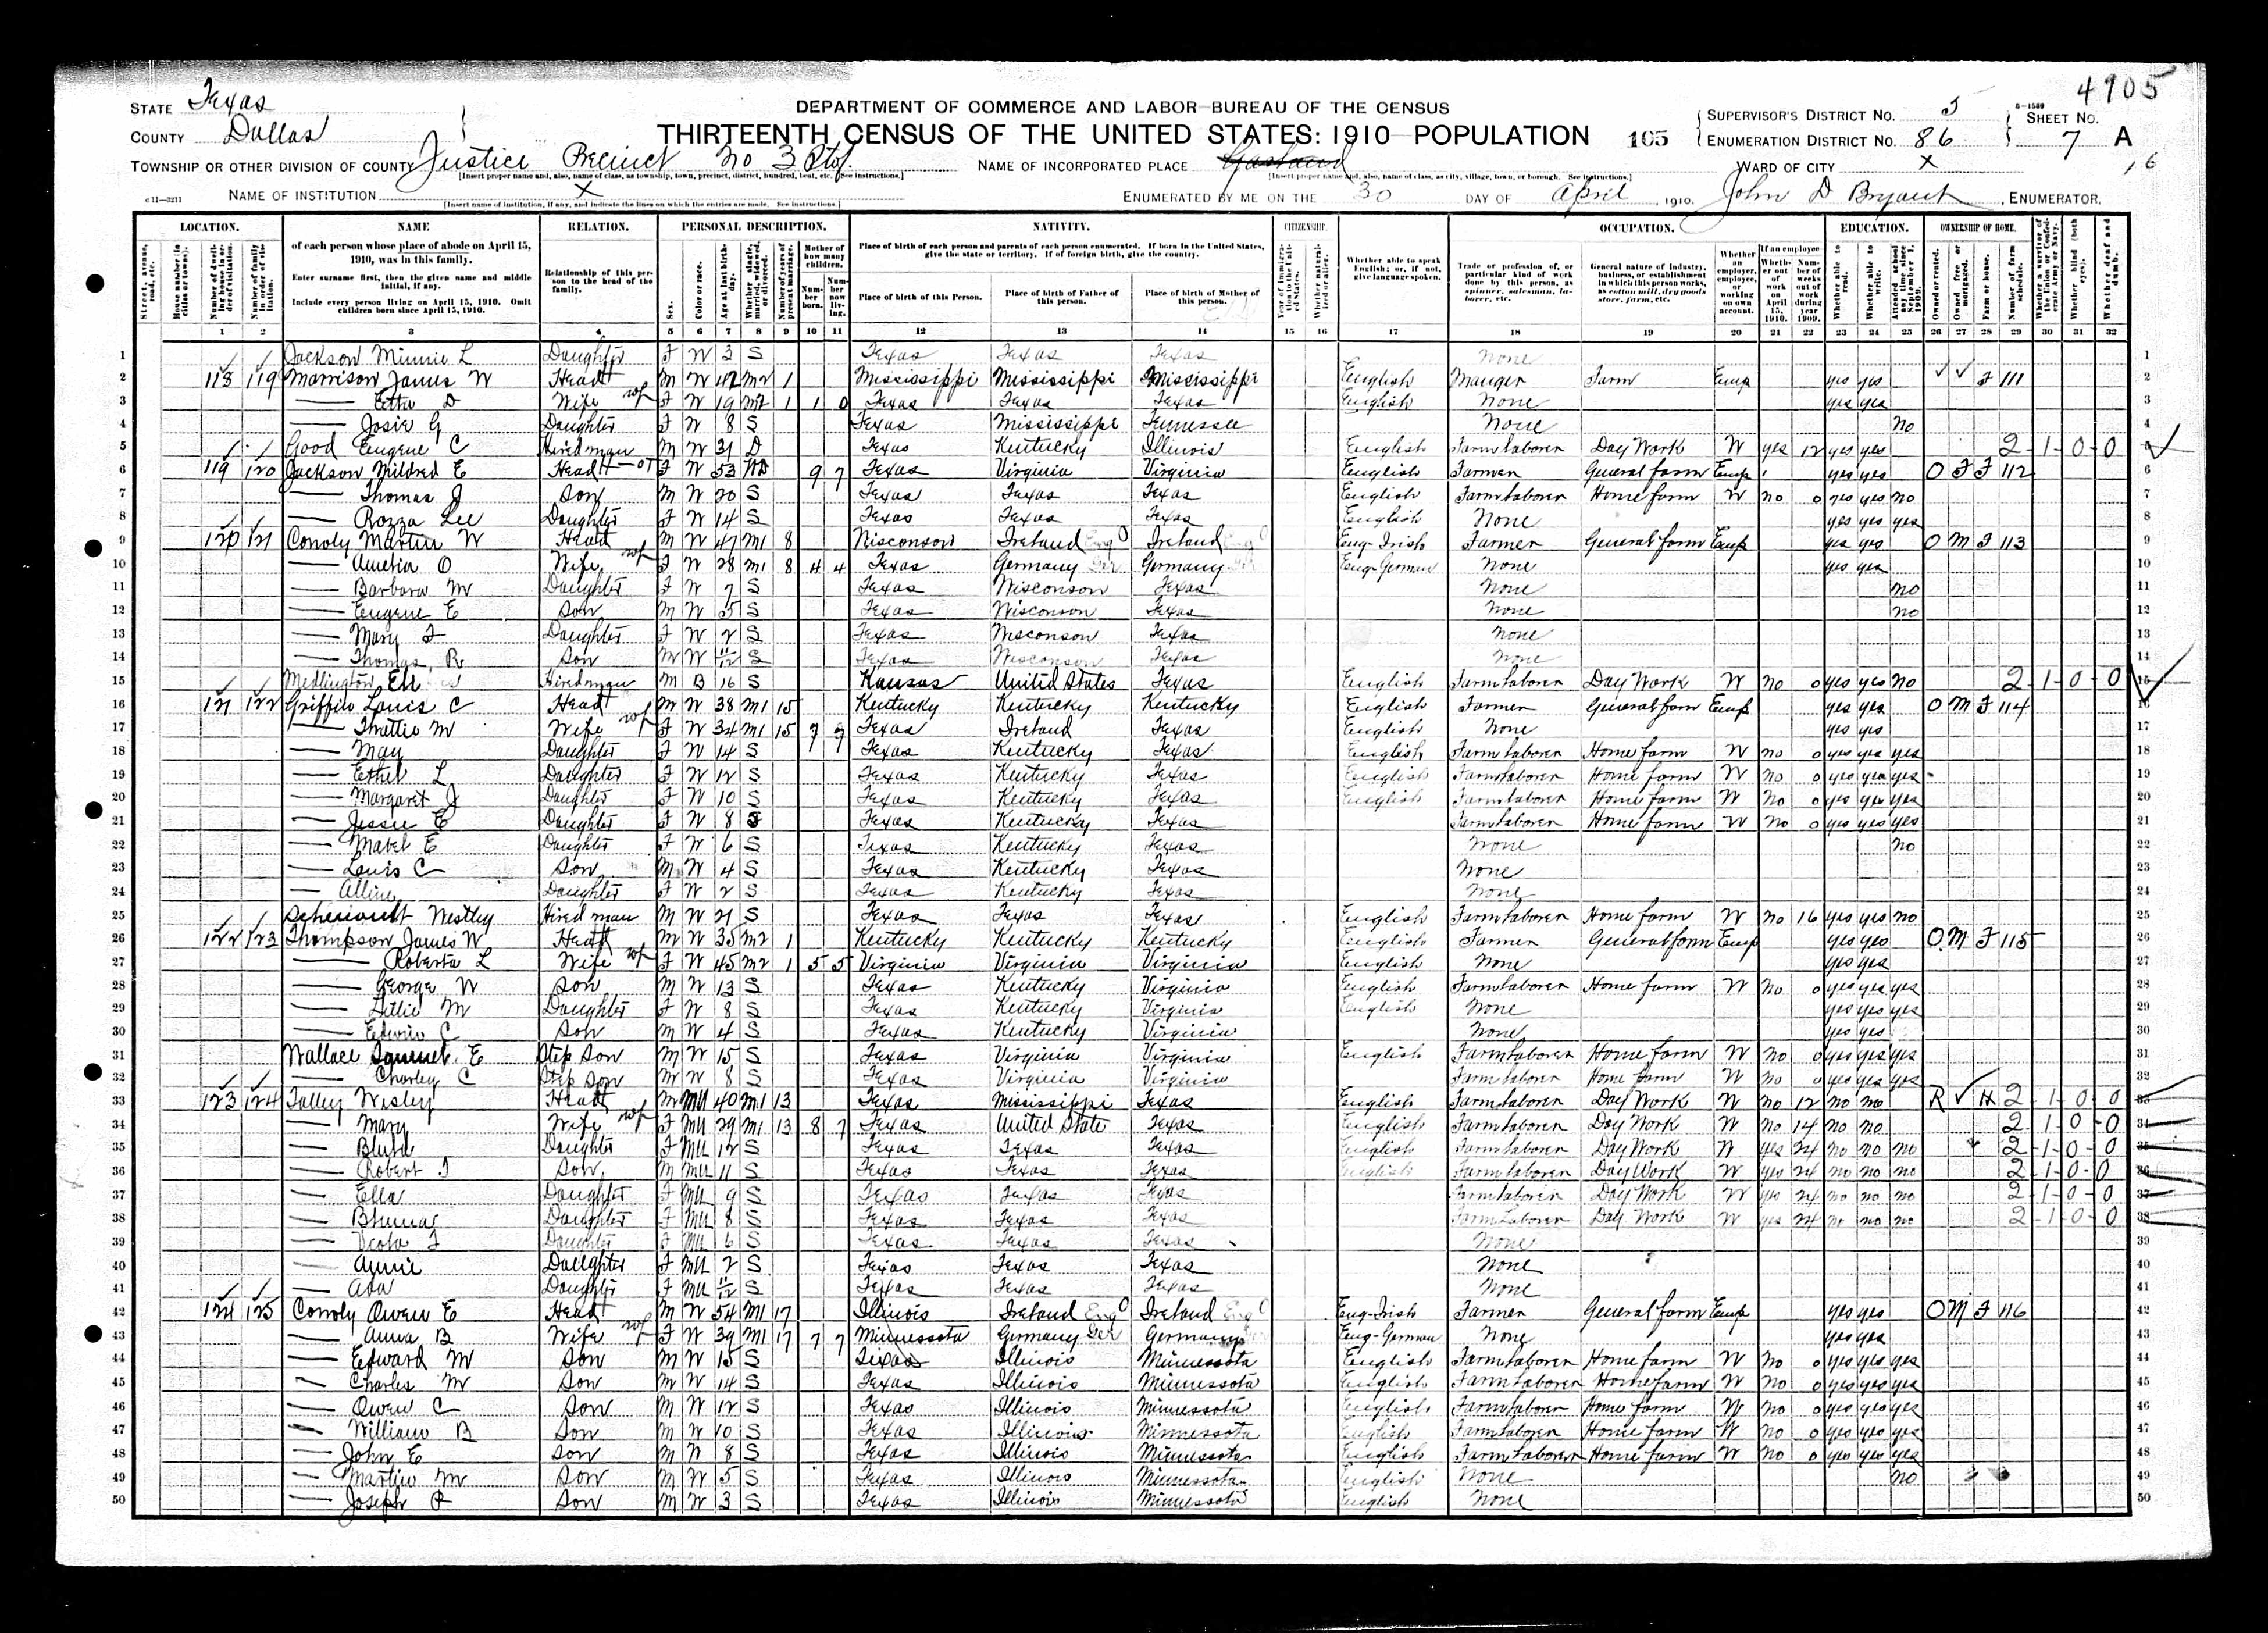 4905
STATE Texas
COUNTY Dallas
TOWNSHIP OR OTHER DIVISION OF COUNTY Justice Precinct No 3 Ptof.
[Insert proper name and, also, name of class, as township, town, precinct, district, hundred, beat, etc. See instructions.]
NAME OF INSTITUTION X
[Insert name of institution, if any, and indicate the lines on which the entries are made. See instructions.]
c 11—3211
DEPARTMENT OF COMMERCE AND LABOR—BUREAU OF THE CENSUS
THIRTEENTH CENSUS OF THE UNITED STATES: 1910—POPULATION
105
NAME OF INCORPORATED PLACE
[Insert proper name and, also, name of class, as city, village, town, or borough. See instructions.]
ENUMERATED BY ME ON THE 30 DAY OF April, 1910. John D Bryant, ENUMERATOR.
SUPERVISOR'S DISTRICT No. 5
ENUMERATION DISTRICT No. 86
WARD OF CITY X
8—1589
SHEET No.
7 A
16
LOCATION. NAME RELATION. PERSONAL DESCRIPTION. NATIVITY. CITIZENSHIP. OCCUPATION. EDUCATION. OWNERSHIP OF HOME.
1 2 3 4 5 6 7 8 9 10 11 12 13 14 15 16 17 18 19 20 21 22 23 24 25 26 27 28 29 30 31 32
1 Jackson Minnie L Daughter F W 3 S Texas Texas Texas None 1
2 118 119 Marrison James W Head M W 42 M2 1 Mississippi Mississippi Mississippi English Manger Farm Emp yes yes F 111 2
3 — Etta D Wife F W 19 M2 1 1 0 Texas Texas Texas English None yes yes 3
4 — Josie G Daughter F W 8 S Texas Mississippi Tennessee None no 4
5 Good Eugene C Hired man M W 31 D Texas Kentucky Illinois English Farm laborer Day Work W yes 12 yes yes 2-1-0-0
6 119 120 Jackson Mildred E Head F W 53 Wd 9 7 Texas Virginia Virginia English Farmer General farm Emp yes yes O F F 112 6
7 — Thomas J Son M W 20 S Texas Texas Texas English Farm laborer Home farm W no 0 yes yes no 7
8 — Rozza Lee Daughter F W 14 S Texas Texas Texas English None yes yes yes 8
9 120 121 Conoly Martin W Head M W 47 M1 8 Wisconson Ireland Eng Ireland Eng Eng-Irish Farmer General farm Emp yes yes O M F 113 9
10 — Amelia O Wife F W 28 M1 8 4 4 Texas Germany Ger Germany Ger Eng-German None yes yes 10
11 — Barbara M Daughter F W 7 S Texas Wisconson Texas None no 11
12 — Eugene E Son M W 5 S Texas Wisconson Texas None no 12
13 — Mary F Daughter F W 2 S Texas Wisconson Texas None 13
14 — Thomas R Son M W 11/12 S Texas Wisconson Texas None 14
15 Medlington Ell Hired man M B 16 S Kansas United States Texas English Farm laborer Day Work W no 0 yes yes no 2-1-0-0
16 121 122 Griffin Louis C Head M W 38 M1 15 Kentucky Kentucky Kentucky English Farmer General farm Emp yes yes O M F 114
17 — Thattie M Wife F W 34 M1 15 7 7 Texas Ireland Texas English None yes yes 17
18 — May Daughter F W 14 S Texas Kentucky Texas English Farm laborer Home farm W no 0 yes yes yes 18
19 — Ethel L Daughter F W 12 S Texas Kentucky Texas English Farm laborer Home farm W no 0 yes yes yes 19
20 — Margaret J Daughter F W 10 S Texas Kentucky Texas English Farm laborer Home farm W no 0 yes yes yes 20
21 — Jessie E Daughter F W 8 S Texas Kentucky Texas Farm laborer Home farm W no 0 yes yes yes 21
22 — Mabel E Daughter F W 6 S Texas Kentucky Texas None no 22
23 — Louis C Son M W 4 S Texas Kentucky Texas None 23
24 — Alline Daughter F W 2 S Texas Kentucky Texas None 24
25 Westley Hired man M W 21 S Texas Texas Texas English Farm laborer Home farm W no 16 yes yes no 25
26 122 123 Thompson James W Head M W 35 M2 1 Kentucky Kentucky Kentucky English Farmer General farm Emp yes yes O M F 115 26
27 — Roberta L Wife F W 45 M2 1 5 5 Virginia Virginia Virginia English None yes yes 27
28 — George W Son M W 13 S Texas Kentucky Virginia English Farm laborer Home farm W no 0 yes yes yes 28
29 — Lillie M Daughter F W 8 S Texas Kentucky Virginia English None yes yes yes 29
30 — Edwin C Son M W 4 S Texas Kentucky Virginia None yes yes 30
31 Wallace Samuel E Step Son M W 15 S Texas Virginia Virginia English Farm laborer Home farm W no 0 yes yes yes 31
32 — Charley C Step Son M W 8 S Texas Virginia Virginia Farm laborer Home farm W no 0 yes yes yes 32
33 123 124 Talley Wesley Head M Mu 40 M1 13 Texas Mississippi Texas English Farm laborer Day Work W no 12 no no R H 2-1-0-0 33
34 — Mary Wife F Mu 29 M1 13 8 7 Texas United State Texas English Farm laborer Day Work W no 14 no no 2-1-0-0 34
35 — Daughter F Mu 12 S Texas Texas Texas English Farm laborer Day Work W yes 24 no no no 2-1-0-0 35
36 — Robert T Son M Mu 11 S Texas Texas Texas English Farm laborer Day Work W yes 24 no no no 2-1-0-0 36
37 — Ella Daughter F Mu 9 S Texas Texas Texas Farm laborer Day Work W yes 24 no no no 2-1-0-0 37
38 — Daughter F Mu 8 S Texas Texas Texas Farm laborer Day Work W yes 24 no no no 2-1-0-0 38
39 — Daughter F Mu 6 S Texas Texas Texas None 39
40 — Annie Daughter F Mu 2 S Texas Texas Texas None 40
41 — Ada Daughter F Mu 11/12 S Texas Texas Texas None 41
42 124 125 Conoly Owen E Head M W 54 M1 17 Illinois Ireland Eng Ireland Eng Eng-Irish Farmer General farm Emp yes yes O M F 116 42
43 — Anna B Wife F W 39 M1 17 7 7 Minnessota Germany Ger Germany Eng-German None yes yes 43
44 — Edward M Son M W 15 S Texas Illinois Minnessota English Farm laborer Home farm W no 0 yes yes yes 44
45 — Charles M Son M W 14 S Texas Illinois Minnessota English Farm laborer Home farm W no 0 yes yes yes 45
46 — Owen C Son M W 12 S Texas Illinois Minnessota English Farm laborer Home farm W no 0 yes yes yes 46
47 — William B Son M W 10 S Texas Illinois Minnessota English Farm laborer Home farm W no 0 yes yes yes 47
48 — John E Son M W 8 S Texas Illinois Minnessota English Farm laborer Home farm W no 0 yes yes yes 48
49 — Martin M Son M W 5 S Texas Illinois Minnessota English None no 49
50 — Joseph P Son M W 3 S Texas Illinois Minnessota English None 50